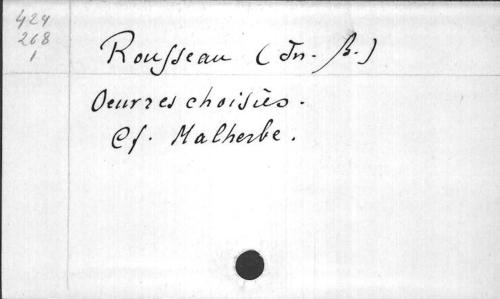 424
268
1
Rousseau (Jn. B.)
Oeuvres choisies.
Cf. Malherbe.